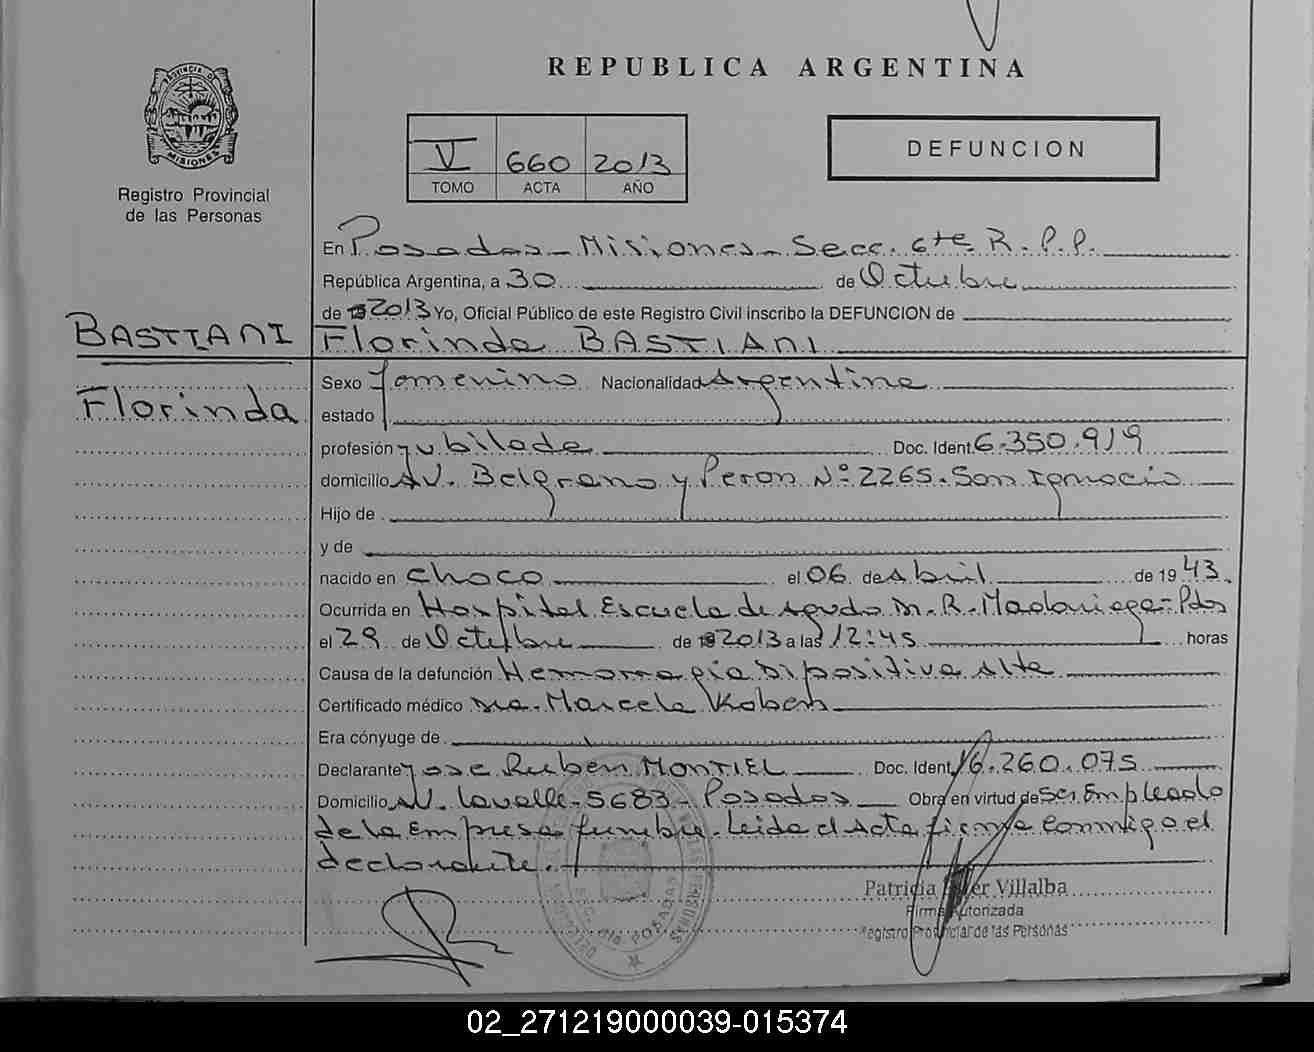 REPUBLICA ARGENTINA
PROVINCIA DE
MISIONES
Registro Provincial
de las Personas
V 660 2013
TOMO ACTA AÑO
DEFUNCION
En Posadas - Misiones - Secc. 6te. R. P. P.
República Argentina, a 30 de Octubre
de 2013 Yo, Oficial Público de este Registro Civil inscribo la DEFUNCION de
BASTIANI
Florinda BASTIANI
Florinda
Sexo femenino Nacionalidad Argentina
estado
profesión jubilada Doc. Ident. 6.350.919
domicilio AV. Belgrano y Peron Nº 2265. San Ignacio
Hijo de
y de
nacido en Choco el 06 de Abril de 1943.
Ocurrida en Hospital Escuela de Agudo M. R. Madariaga - Pdas
el 29 de Octubre de 2013 a las 12:45 horas
Causa de la defunción Hemorragia Dipositiva Alta
Certificado médico Dra. Marcela
Era cónyuge de
Declarante Jose Ruben MONTIEL Doc. Ident. 16.260.075
Domicilio AV. Lavalle - 5683 - Posadas Obra en virtud de ser Empleado
de la Empresa funebre. Leida el Acta firma conmigo el
declarante.
Patricia Villalba
Firma Autorizada
Registro Provincial de las Personas
02_271219000039-015374